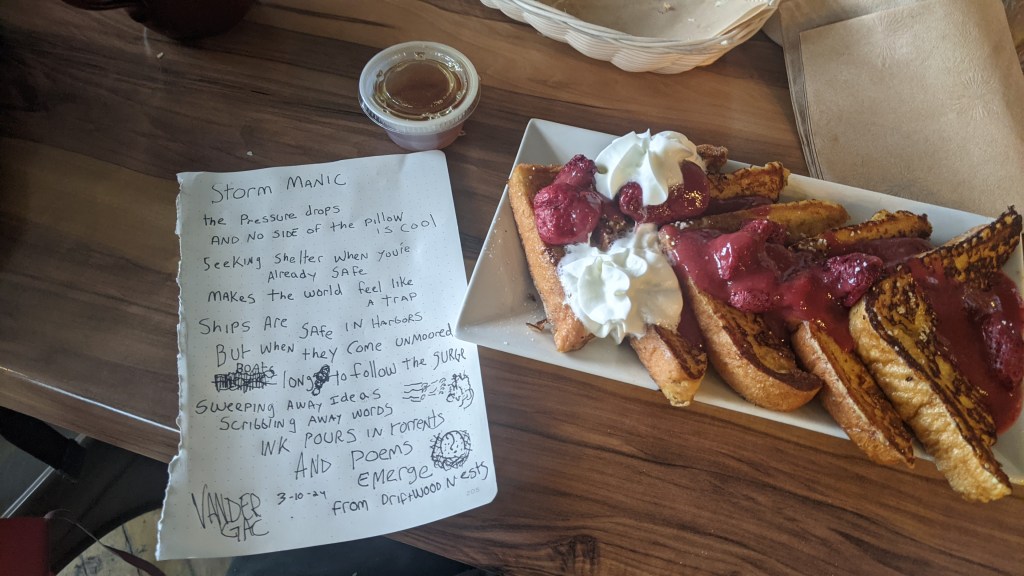 Storm Manic
the Pressure drops
AND NO SIDE of the Pillow
is Cool
Seeking Shelter when you're
Already SAFe
makes the world feel like
A TrAP
Ships Are SAFe IN HArbors
But when they Come UNMOOreD
BOATS long to follow the SURGe
Sweeping Away Ideas
Scribbling Away words
INK POURS IN torrents
AND Poems
Emerge
from Driftwood Nests
3-10-24
VANDER
GAC